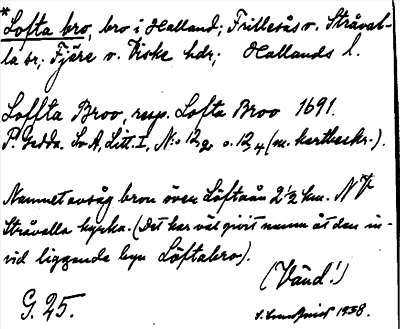 * Lofta bro, bro i Halland; Frillesås o. Stråval-
la sr; Fjäre o. Viske hdr; Hallands l.
Loffta Broo, resp. Lofta Broo 1691.
P. Gedda. Sv A, Litt. I, N:o 12 o. 12 4 (m. kartbeskr.).
Namnet avsåg bron över Löftaån 2 ½ km. NV
Stråvalla kyrka. (Det har väl givit namn åt den in-
vid liggende byn Löftabro).
(Vänd!)
G. 25. 1938.